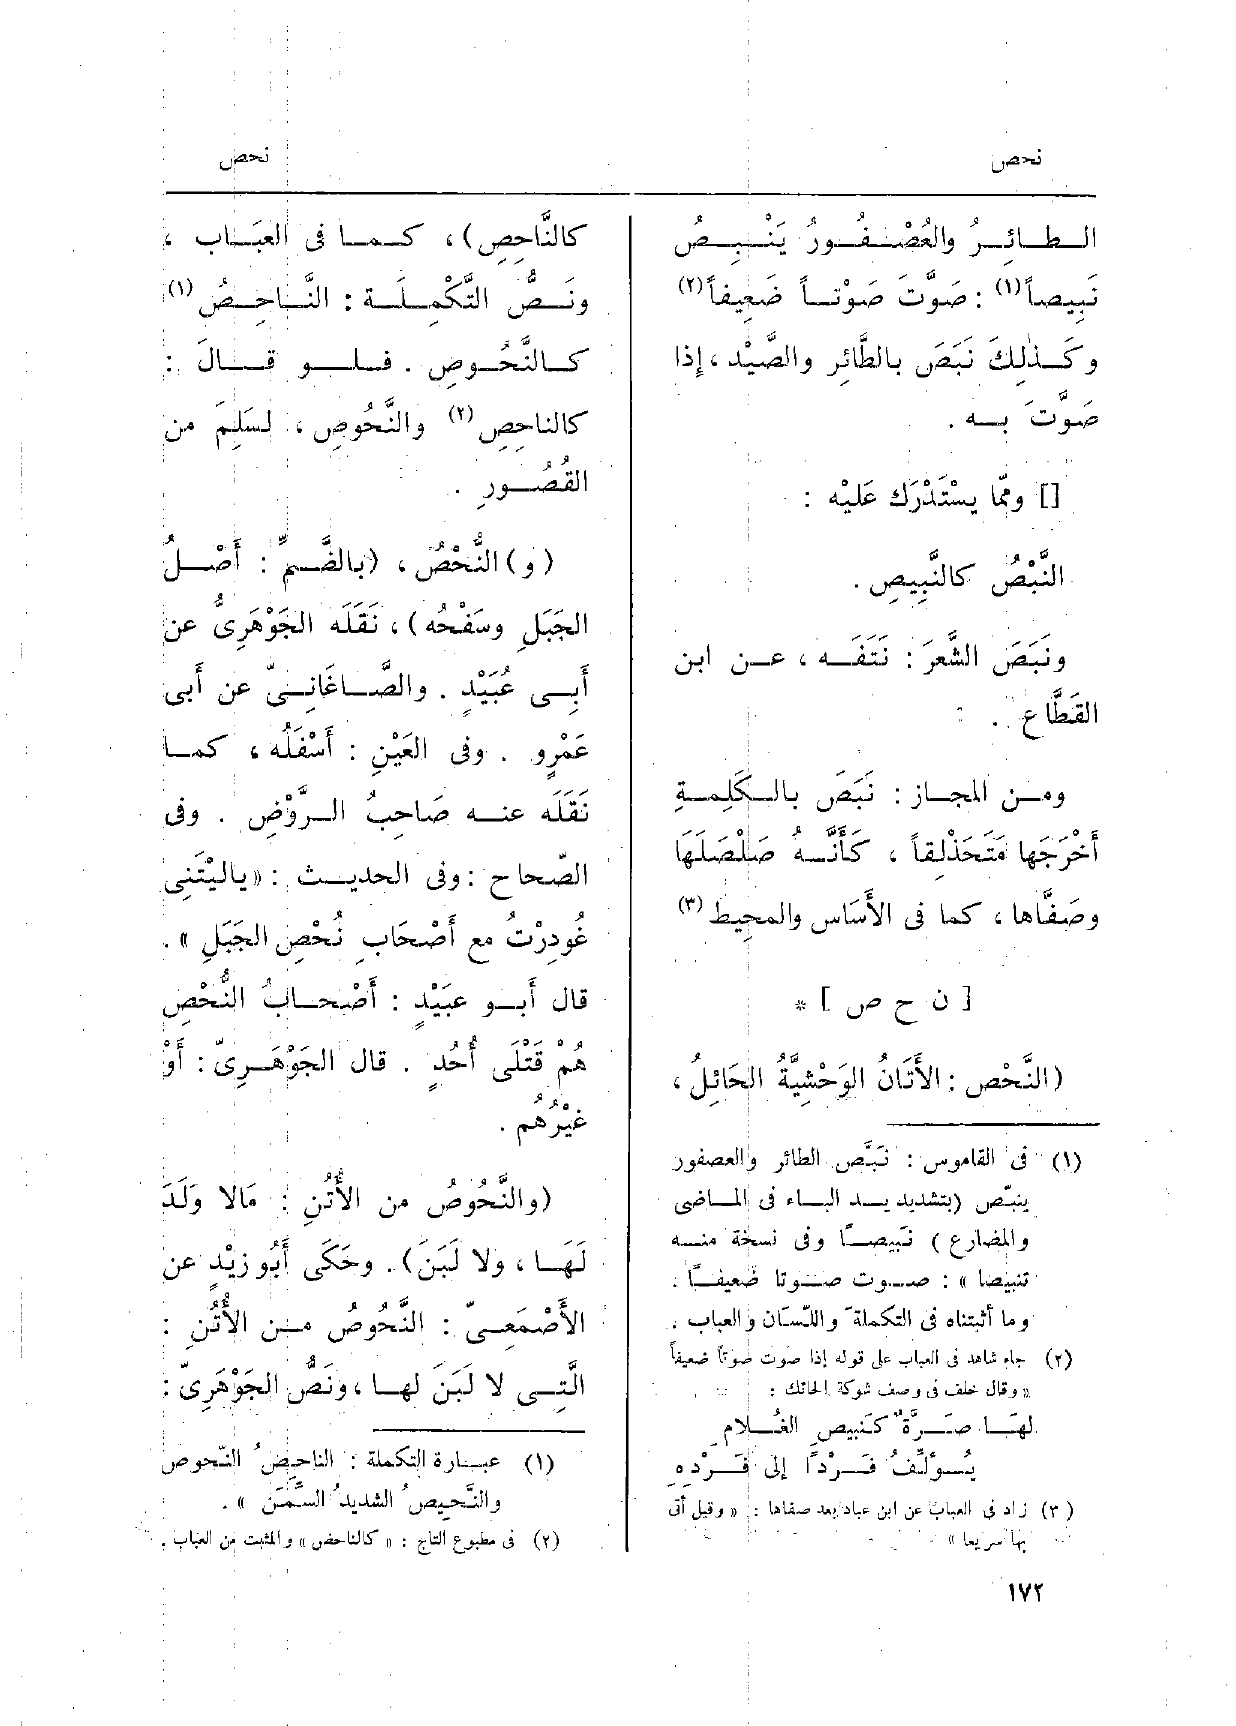 نحص
نحص
الطـائِـرُ والعُصْفُـورُ يَنْبِـصُ
نَبِيصاً(١) : صَوَّتَ صَوْتـاً ضَعِيفاً(٢)
وكَـذٰلِكَ نَبَصَ بالطَّائِر والصَّيْد ، إذا
صَوَّتَ بـه .
[] ومّما يسْتَدْرَك عَليْه :
النَّبْصُ كالنَّبِيصِ .
ونَبَصَ الشَّعرَ : نَتَفَـه ، عـن ابن
القَطَّاع .
ومـن المجـاز : نَبَصَ بالـكَلِمـةِ
أَخْرَجَها مُتَحَذْلِقاً ، كَأَنَّـهُ صَلْصَلَهَا
وصَفَّاها ، كما فى الأَسَاس والمحِيط(٣)
[ ن ح ص ] *
(النَّحْص : الأَتَانُ الوَحْشِيَّةُ الحَائِلُ ،
(١) فى القاموس : نَبَّص الطائر والعصفور
ينبّص (بتشديد البـاء فى المـاضى
والمضارع) نَبِيصـاً وفى نسخة منـه
تنبيصا » : صـوت صـوتا ضعيفـاً .
وما أثبتناه فى التكملة واللسَان والعباب .
(٢) جاء شاهد فى العباب على قوله إذا صوت صوتاً ضعيفاً
« وقال خلف فى وصف شوكة الحائك :
لهَـا صَـرَّةٌ كَنَبِيصِ الغُـلامِ
يُـؤَلِّفُ فَـرْداً إلى فَـرْدِهِ
(٣) زاد فى العباب عن ابن عباد بعد صفاها : « وقيل أتى
بها سريعا »
كالنَّاحِصِ) ، كـمـا فى العبَـاب ،
ونَـصُّ التَّكْمِلَـة : النَّـاحِـصُ(١)
كـالنَّحُـوصِ . فـلـو قـالَ :
كالناحِصِ(٢) والنَّحُوصِ ، لسَلِمَ من
القُصُـورِ .
(و) النُّحْصُ ، (بالضَّـمِّ : أَصْـلُ
الجَبَلِ وسَفْحُه) ، نَقَلَه الجَوْهَرِىُّ عن
أَبِـى عُبَيْدٍ . والصَّـاغَانِـىّ عن أَبى
عَمْرٍو . وفى العَيْنِ : أَسْفَلُه ، كمـا
نَقَلَه عنـه صَاحِبُ الـرَّوْضِ . وفى
الصّحاح : وفى الحديـث : « يالَيْتَنِى
غُودِرْتُ مع أَصْحَابِ نُحْصِ الجَبَلِ » .
قال أَبـو عبَيْدٍ : أَصْحـابُ النُّحْصِ
هُمْ قَتْلَى أُحُدٍ . قال الجَوْهَـرِىّ : أَوْ
غيْرُهُم .
(والنَّحُوصُ من الأُتُنِ : مَالا وَلَدَ
لَهَـا ، ولا لَبَنَ) . وحَكَى أَبُو زيْدٍ عن
الأَصْمَعِـىّ : النَّحُوصُ مـن الأُتُنِ :
الَّتِـى لا لَبَنَ لهـا ، ونَصُّ الجَوْهَرِىّ :
(١) عبـارة التكملة : الناحِصُ النّحوص
والنَّحِيصُ الشديدُ السِّمَن » .
(٢) فى مطبوع التاج : « كالناحض » والمثبت من العباب .
١٧٢